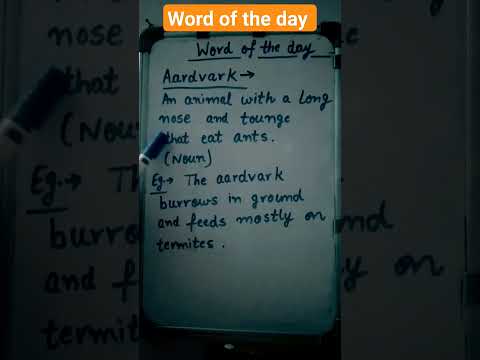 Word of the day
Word of the day
Aardvark →
An animal with a long
nose and tounge
that eat ants.
(Noun)
Eg.→ The aardvark
burrows in ground
and feeds mostly on
termites.